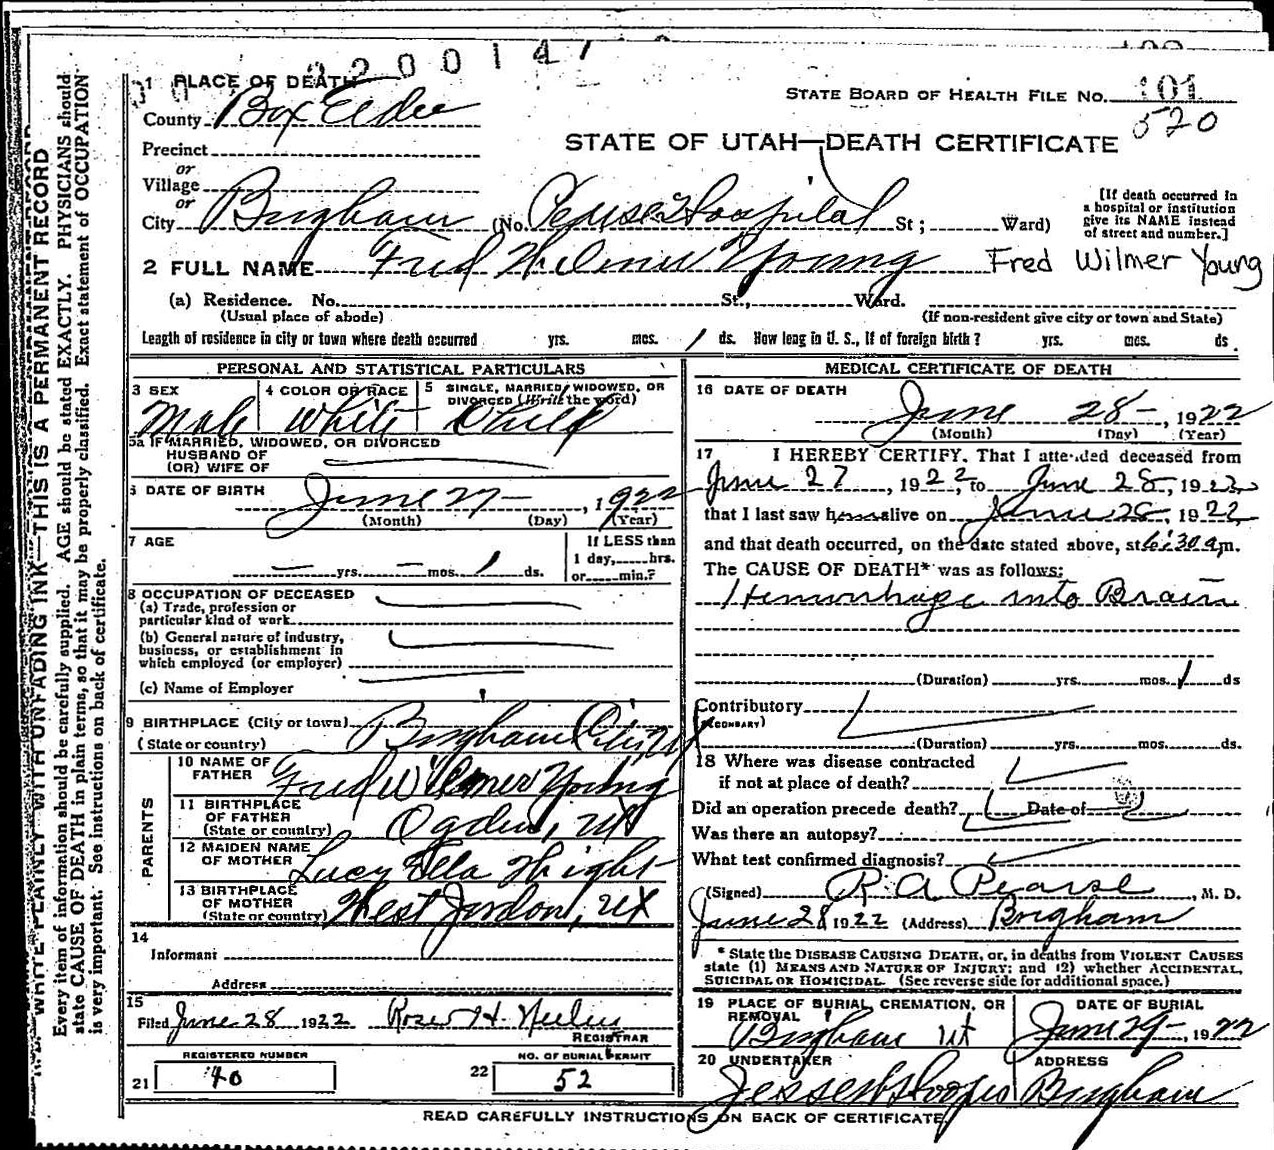 1 PLACE OF DEATH
STATE BOARD OF HEALTH FILE NO. 101
520
County Box Elder
STATE OF UTAH—DEATH CERTIFICATE
Precinct
or
Village
or
City Brigham (No. Pearse Hospital St; Ward)
[If death occurred in
a hospital or institution
give its NAME instead
of street and number.]
2 FULL NAME Fred Wilmer Young Fred Wilmer Young
(a) Residence. No. St., Ward.
(Usual place of abode) (If non-resident give city or town and State)
Length of residence in city or town where death occurred yrs. mos. 1 ds. How long in U. S., if of foreign birth? yrs. mos. ds.
PERSONAL AND STATISTICAL PARTICULARS
3 SEX Male
4 COLOR OR RACE White
5 SINGLE, MARRIED, WIDOWED, OR
DIVORCED (Write the word) Child
5a IF MARRIED, WIDOWED, OR DIVORCED
HUSBAND OF
(OR) WIFE OF
6 DATE OF BIRTH June 27 — , 1922
(Month) (Day) (Year)
7 AGE
— yrs. — mos. 1 ds.
If LESS than
1 day, hrs.
or min.?
8 OCCUPATION OF DECEASED
(a) Trade, profession or
particular kind of work
(b) General nature of industry,
business, or establishment in
which employed (or employer)
(c) Name of Employer
9 BIRTHPLACE (City or town) Brigham City, Ut
(State or country)
PARENTS
10 NAME OF
FATHER Fred Wilmer Young
11 BIRTHPLACE
OF FATHER
(State or country) Ogden, Ut
12 MAIDEN NAME
OF MOTHER Lucy Ella Wight
13 BIRTHPLACE
OF MOTHER
(State or country) West Jordon, Ut
14
Informant
Address
15
Filed June 28 1922
REGISTRAR
REGISTERED NUMBER
21 40
NO. OF BURIAL PERMIT
22 52
MEDICAL CERTIFICATE OF DEATH
16 DATE OF DEATH
June 28 — , 1922
(Month) (Day) (Year)
17 I HEREBY CERTIFY, That I attended deceased from
June 27, 1922, to June 28, 1922
that I last saw h alive on June 28, 1922
and that death occurred, on the date stated above, at 6:30 a.m.
The CAUSE OF DEATH* was as follows:
Hemorrhage into Brain
(Duration) yrs. mos. 1 ds
Contributory
(SECONDARY)
(Duration) yrs. mos. ds.
18 Where was disease contracted
if not at place of death?
Did an operation precede death? Date of
Was there an autopsy?
What test confirmed diagnosis?
(Signed) R A Pearse, M. D.
June 28 1922 (Address) Brigham
* State the DISEASE CAUSING DEATH, or, in deaths from VIOLENT CAUSES
state (1) MEANS AND NATURE OF INJURY; and (2) whether ACCIDENTAL,
SUICIDAL OR HOMICIDAL. (See reverse side for additional space.)
19 PLACE OF BURIAL, CREMATION, OR
REMOVAL
Brigham Ut
DATE OF BURIAL
June 29 — , 1922
20 UNDERTAKER
ADDRESS
Brigham
READ CAREFULLY INSTRUCTIONS ON BACK OF CERTIFICATE.
WRITE PLAINLY WITH UNFADING INK—THIS IS A PERMANENT RECORD
Every item of information should be carefully supplied. AGE should be stated EXACTLY. PHYSICIANS should
state CAUSE OF DEATH in plain terms, so that it may be properly classified. Exact statement of OCCUPATION
is very important. See instructions on back of certificate.